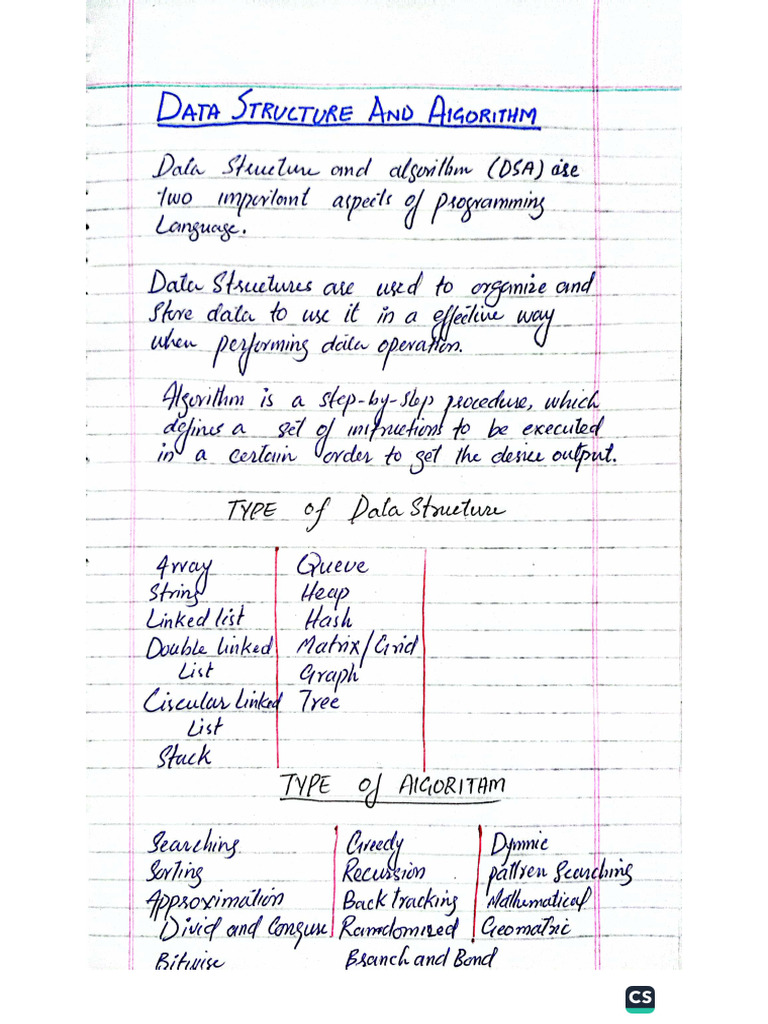 DATA STRUCTURE AND AlGORITHM
Data Structure and algorithm (DSA) are
two important aspects of programming
Language.
Data Structures are used to organize and
Store data to use it in a effective way
when performing data operation.
Algorithm is a step-by-step procedure, which
defines a set of instructions to be executed
in a certain order to get the desire output.
TYPE of Data Structure
Array Queue
String Heap
Linked list Hash
Double linked Matrix/Grid
List Graph
Circular linked Tree
List
Stack
TYPE of AlGORITAM
Searching Greedy Dymnic
Sorting Recursion pattren Searching
Approximation Back tracking Mathematical
Divid and Conqure Ramdomized Geomatric
Bitwise Branch and Bond
CS